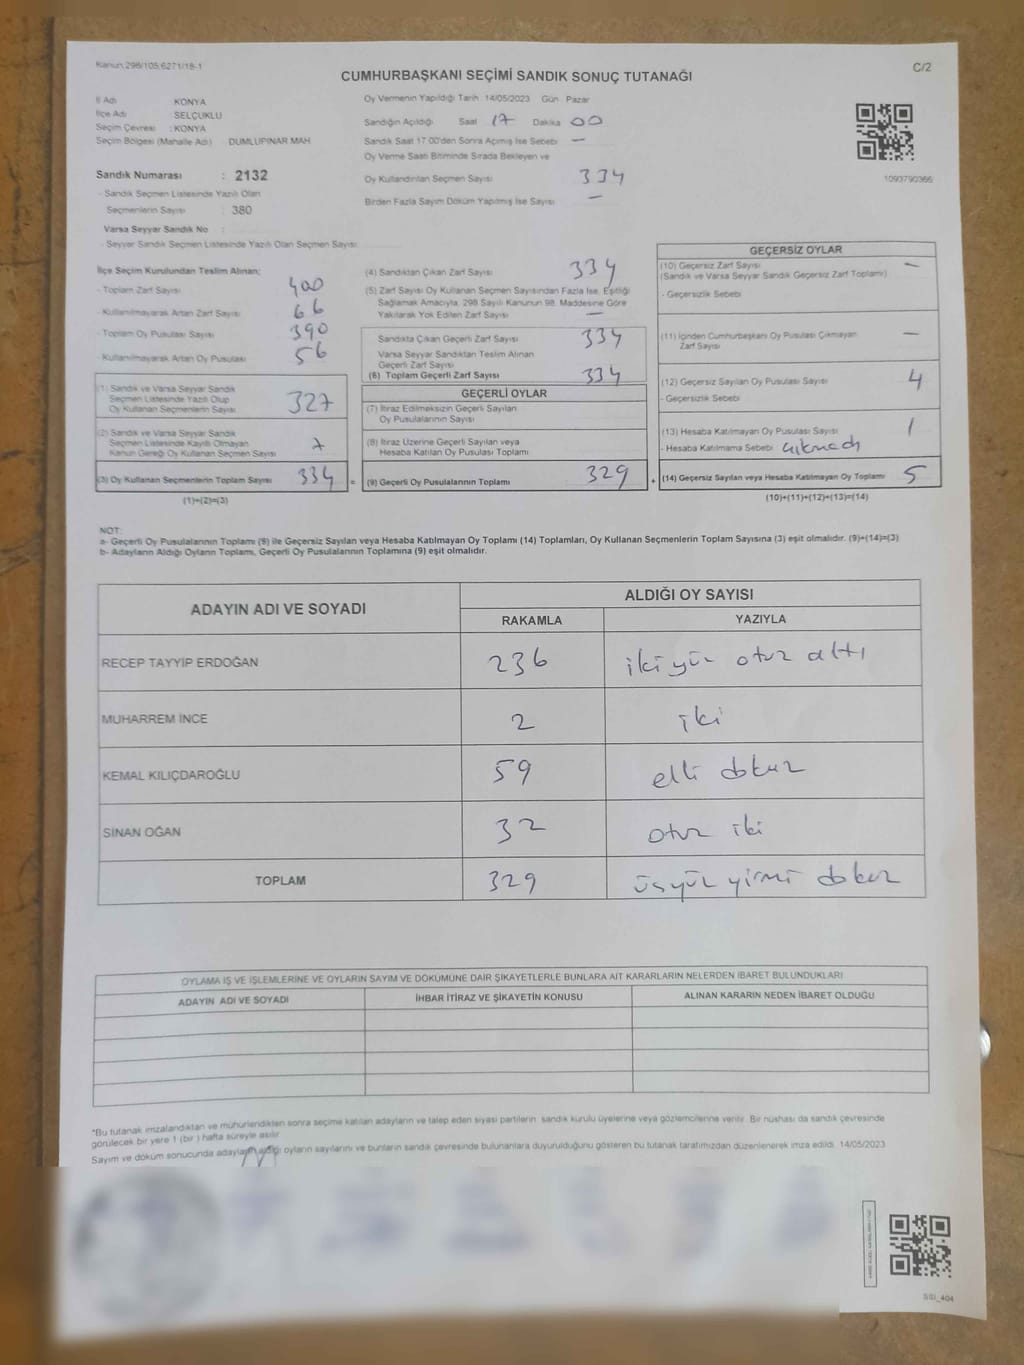 Kanun:298/105,6271/18-1
C/2
CUMHURBAŞKANI SEÇİMİ SANDIK SONUÇ TUTANAĞI
İl Adı KONYA
İlçe Adı SELÇUKLU
Seçim Çevresi : KONYA
Seçim Bölgesi (Mahalle Adı) DUMLUPINAR MAH
Oy Vermenin Yapıldığı Tarih 14/05/2023 Gün Pazar
Sandığın Açıldığı Saat 17 Dakika 00
Sandık Saat 17:00'den Sonra Açılmış İse Sebebi —
Oy Verme Saati Bitiminde Sırada Bekleyen ve
Oy Kullandırılan Seçmen Sayısı 334
Birden Fazla Sayım Döküm Yapılmış İse Sayısı —
1093790366
Sandık Numarası : 2132
- Sandık Seçmen Listesinde Yazılı Olan
Seçmenlerin Sayısı : 380
Varsa Seyyar Sandık No :
- Seyyar Sandık Seçmen Listesinde Yazılı Olan Seçmen Sayısı
İlçe Seçim Kurulundan Teslim Alınan;
- Toplam Zarf Sayısı 400
- Kullanılmayarak Artan Zarf Sayısı 66
- Toplam Oy Pusulası Sayısı 390
- Kullanılmayarak Artan Oy Pusulası 56
(1) Sandık ve Varsa Seyyar Sandık
Seçmen Listesinde Yazılı Olup
Oy Kullanan Seçmenlerin Sayısı 327
(2) Sandık ve Varsa Seyyar Sandık
Seçmen Listesinde Kayıtlı Olmayan
Kanun Gereği Oy Kullanan Seçmen Sayısı 7
(3) Oy Kullanan Seçmenlerin Toplam Sayısı 334 =
(1)+(2)=(3)
(4) Sandıktan Çıkan Zarf Sayısı 334
(5) Zarf Sayısı Oy Kullanan Seçmen Sayısından Fazla İse, Eşitliği
Sağlamak Amacıyla, 298 Sayılı Kanunun 98. Maddesine Göre
Yakılarak Yok Edilen Zarf Sayısı —
Sandıkta Çıkan Geçerli Zarf Sayısı 334
Varsa Seyyar Sandıktan Teslim Alınan
Geçerli Zarf Sayısı
(6) Toplam Geçerli Zarf Sayısı 334
GEÇERLİ OYLAR
(7) İtiraz Edilmeksizin Geçerli Sayılan
Oy Pusulalarının Sayısı
(8) İtiraz Üzerine Geçerli Sayılan veya
Hesaba Katılan Oy Pusulası Toplamı
(9) Geçerli Oy Pusulalarının Toplamı 329 +
GEÇERSİZ OYLAR
(10) Geçersiz Zarf Sayısı —
(Sandık ve Varsa Seyyar Sandık Geçersiz Zarf Toplamı)
- Geçersizlik Sebebi
(11) İçinden Cumhurbaşkanı Oy Pusulası Çıkmayan —
Zarf Sayısı
(12) Geçersiz Sayılan Oy Pusulası Sayısı 4
- Geçersizlik Sebebi
(13) Hesaba Katılmayan Oy Pusulası Sayısı 1
- Hesaba Katılmama Sebebi çıkmadı
(14) Geçersiz Sayılan veya Hesaba Katılmayan Oy Toplamı 5
(10)+(11)+(12)+(13)=(14)
NOT:
a- Geçerli Oy Pusulalarının Toplamı (9) ile Geçersiz Sayılan veya Hesaba Katılmayan Oy Toplamı (14) Toplamları, Oy Kullanan Seçmenlerin Toplam Sayısına (3) eşit olmalıdır. (9)+(14)=(3)
b- Adayların Aldığı Oyların Toplamı, Geçerli Oy Pusulalarının Toplamına (9) eşit olmalıdır.
ADAYIN ADI VE SOYADI
ALDIĞI OY SAYISI
RAKAMLA YAZIYLA
RECEP TAYYİP ERDOĞAN 236 iki yüz otuz altı
MUHARREM İNCE 2 iki
KEMAL KILIÇDAROĞLU 59 elli dokuz
SİNAN OĞAN 32 otuz iki
TOPLAM 329 üçyüz yirmi dokuz
OYLAMA İŞ VE İŞLEMLERİNE VE OYLARIN SAYIM VE DÖKÜMÜNE DAİR ŞİKAYETLERLE BUNLARA AİT KARARLARIN NELERDEN İBARET BULUNDUKLARI
ADAYIN ADI VE SOYADI İHBAR İTİRAZ VE ŞİKAYETİN KONUSU ALINAN KARARIN NEDEN İBARET OLDUĞU
*Bu tutanak imzalandıktan ve mühürlendikten sonra seçime katılan adayların ve talep eden siyasi partilerin sandık kurulu üyelerine veya gözlemcilerine verilir. Bir nüshası da sandık çevresinde
görülecek bir yere 1 (bir) hafta süreyle asılır.
Sayım ve döküm sonucunda adayların aldığı oyların sayılarını ve bunların sandık çevresinde bulunanlara duyurulduğunu gösteren bu tutanak tarafımızdan düzenlenerek imza edildi. 14/05/2023
SSI_404